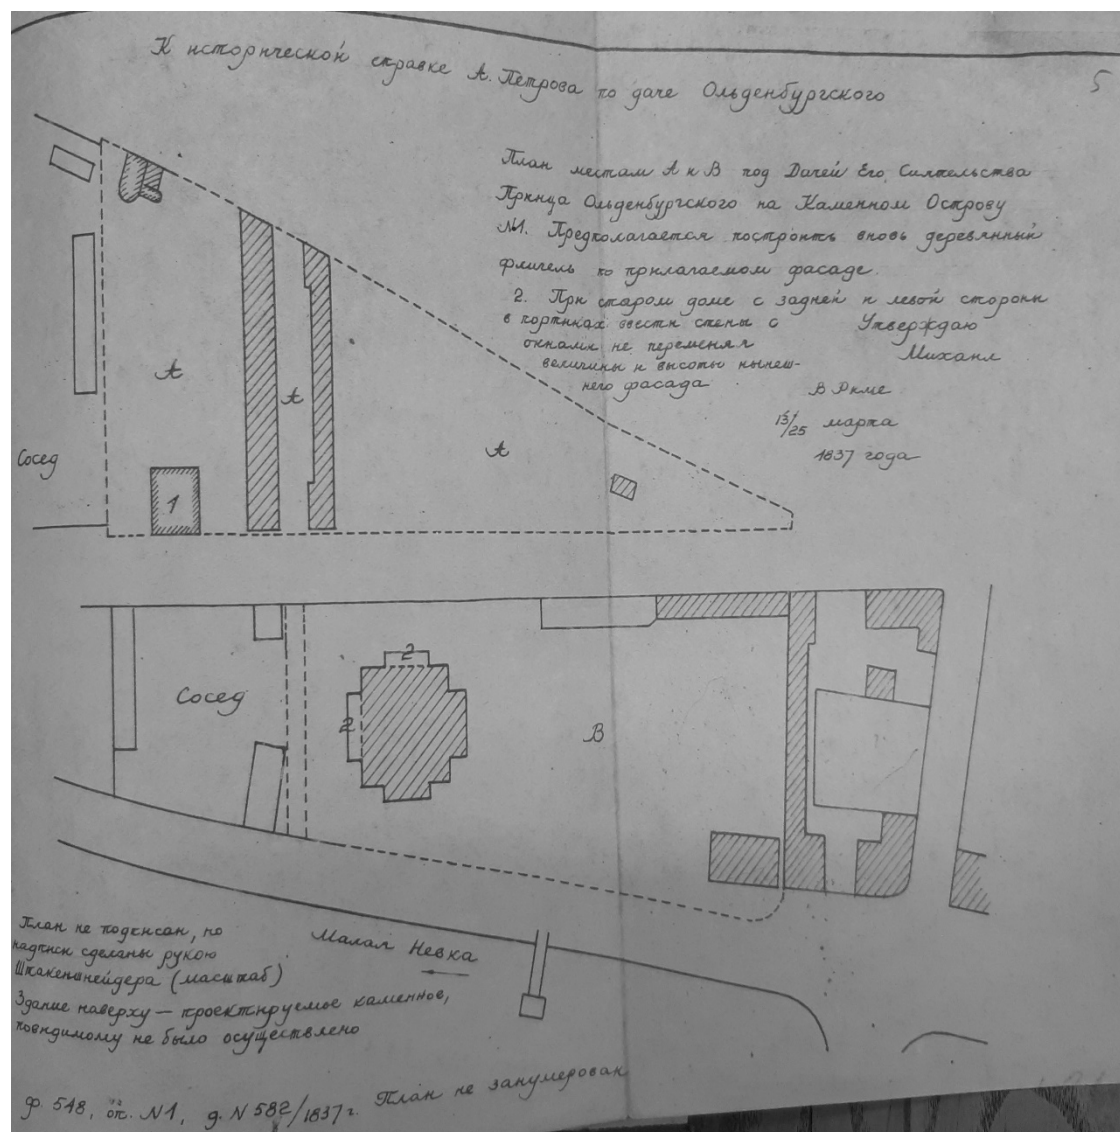 К исторической справке А. Петрова по даче Ольденбургского
5
План местам А и В под Дачей Его Сиятельства
Принца Ольденбургского на Каменном Острову
№1. Предполагается построить вновь деревянный
флигель по прилагаемом фасаде.
2. При старом доме с задней и левой стороны
в портиках ввести стены с
окнами не переменяя
величины и высоты нынеш-
него фасада
Утверждаю
Михаил
В Риме
13/25 марта
1837 года
А
А
А
Сосед
1
2
2
Сосед
В
Малая Невка
План не подписан, но
надписи сделаны рукою
Штакеншнейдера (масштаб)
Здание наверху — проектируемое каменное,
повидимому не было осуществлено
ф. 548, оп. N1, д. N 582/1837 г. План не занумерован